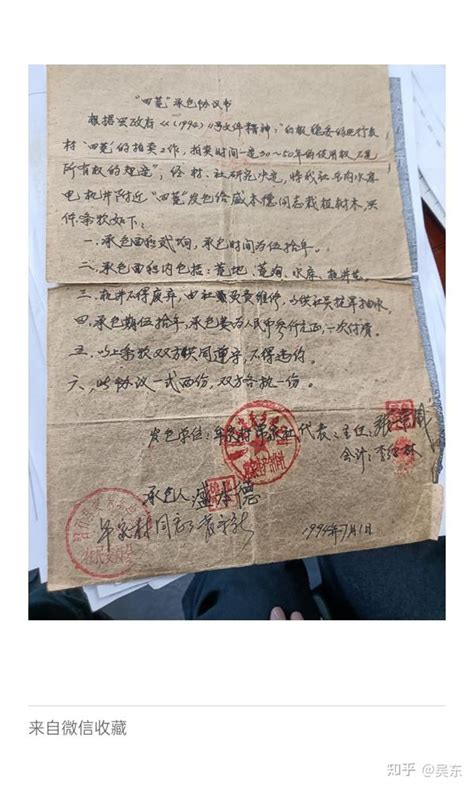 "四荒"承包协议书
根据县政府《(1994)11号文件精神:"
村"四荒"的拍卖工作,拍卖时间一定30~50年的使用权不是
所有权的规定";经村、社研究决定,将我社马内水库
电机井附近"四荒"发包给盛本德同志栽植树木,具
体条款如下:
一、承包面积贰垧,承包时间为伍拾年。
二、承包面积内包括:荒地、荒沟、水库、机井等。
三、机井不得废弃,由社员负责维修,以供社员抗旱抽水。
四、承包期伍拾年,承包费为人民币叁仟元正,一次付清。
五、以上条款双方共同遵守,不得违约。
六、此协议一式两份,双方各执一份。
发包单位:牟家村 代表:主任:
会计:李
承包人:盛本德
牟家村同意
1994年7月1日
来自微信收藏
知乎 @吴东